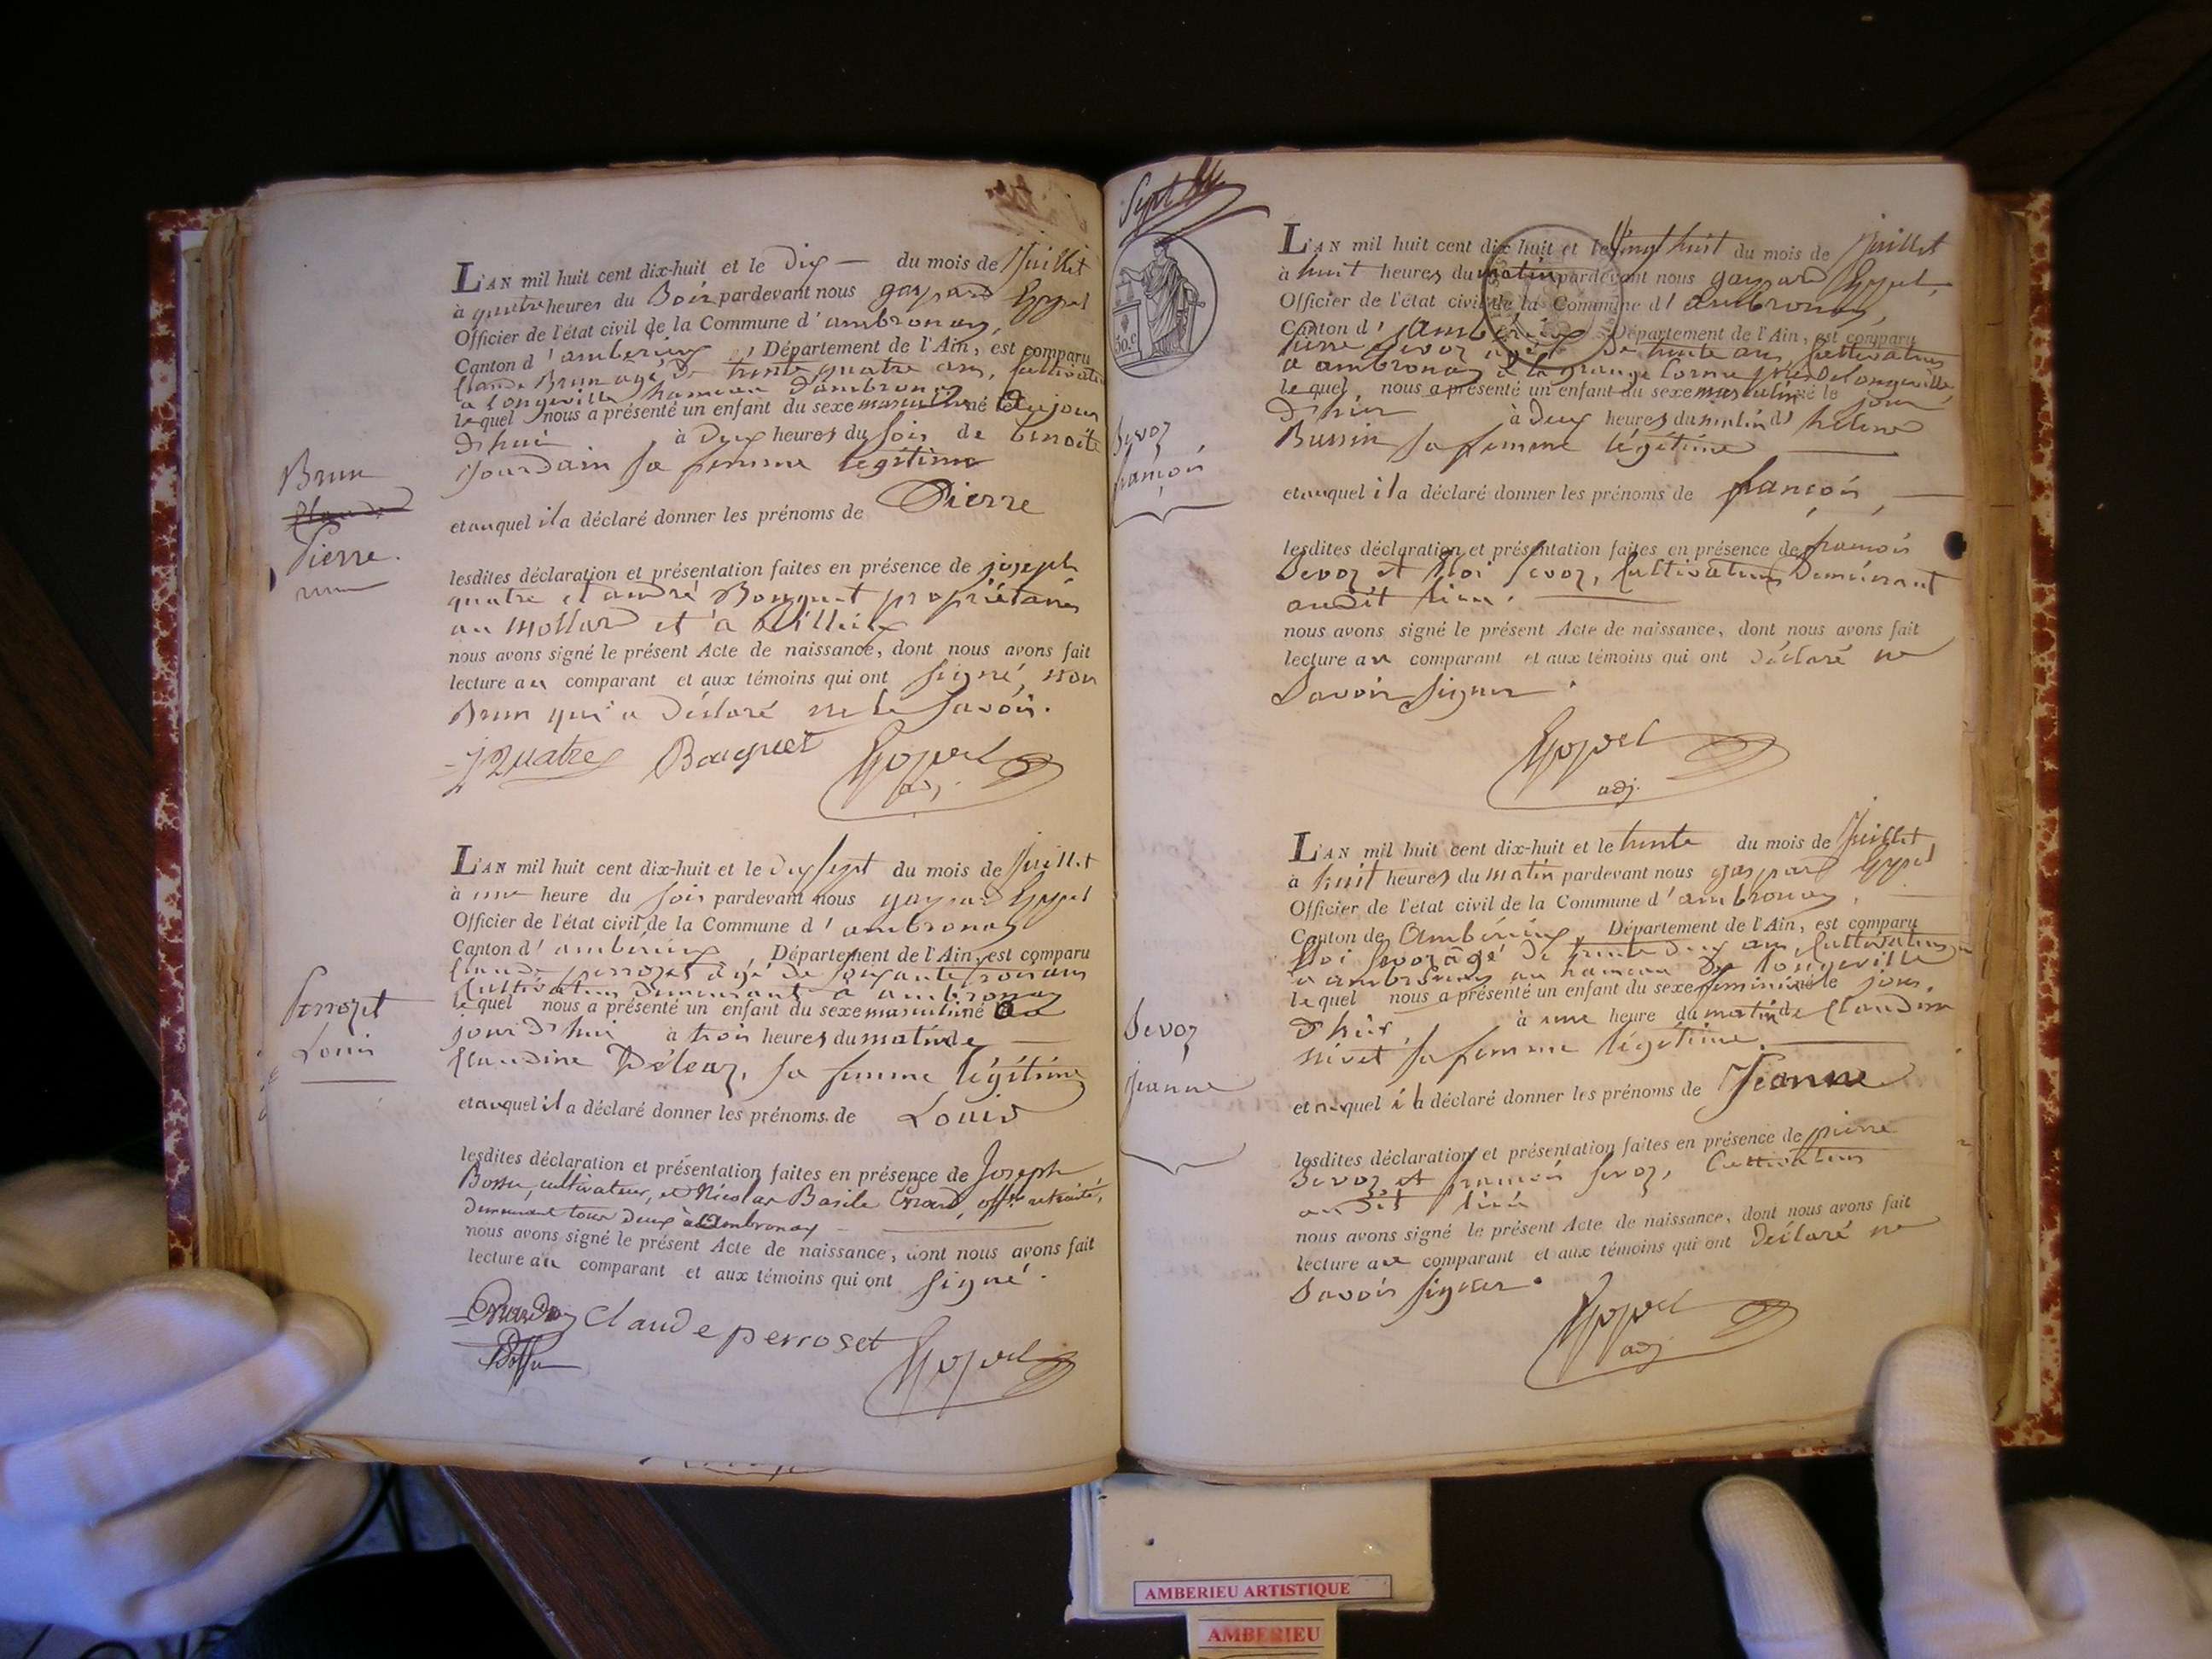 L'AN mil huit cent dix-huit et le Dix — du mois de Juillet
à quatre heures du Soir pardevant nous gaspard
Officier de l'état civil de la Commune d'ambronay,
Canton d'amberieux, Département de l'Ain, est comparu
Claude Brun agé de trente quatre ans, Cultivateur
a longeville hameau d'ambronay
lequel nous a présenté un enfant du sexe masculin né Cejour
D'hui à Deux heures du soir de Benoite
Jourdain sa femme légitime
et auquel il a déclaré donner les prénoms de Pierre
lesdites déclaration et présentation faites en présence de joseph
quatre et andré Bouquet propriétaires
au Mollard et à
nous avons signé le présent Acte de naissance, dont nous avons fait
lecture au comparant et aux témoins qui ont signé, non
Brun qui a déclaré ne le savoir.
J Quatre Bouquet
adj.
Brun
Claude
Pierre.
L'AN mil huit cent dix-huit et le dix sept du mois de Juillet
à une heure du soir pardevant nous gaspard
Officier de l'état civil de la Commune d'ambronay
Canton d'ambérieux Département de l'Ain, est comparu
Claude perrozet âgé de soixante trois ans
Cultivateur demeurant à ambronay
lequel nous a présenté un enfant du sexe masculin né
jour d'hui à trois heures du matin de —
Claudine Déleaz, sa femme légitime
et auquel il a déclaré donner les prénoms de Louis
lesdites déclaration et présentation faites en présence de Joseph
Bossu, cultivateur, et Nicolas Basile Erard, offr. retraité,
demeurant tous deux à Ambronay
nous avons signé le présent Acte de naissance, dont nous avons fait
lecture au comparant et aux témoins qui ont signé.
Claude perroset
Bossu
Perrozet
Louis
Sept
50.c
L'AN mil huit cent dix-huit et le vingt huit du mois de Juillet
à huit heures du matin pardevant nous gaspard
Officier de l'état civil de la Commune d'ambronay,
Canton d'Ambérieux Département de l'Ain, est comparu
Pierre Sevoz agé de trente ans, Cultivateur
a ambronay à la grange Cornu près De longeville,
lequel nous a présenté un enfant du sexe masculin né le jour
D'hier à deux heures du matin d'helene
Bussin sa femme légitime
et auquel il a déclaré donner les prénoms de françois,
lesdites déclaration et présentation faites en présence de françois
Sevoz et Eloi Sevoz, Cultivateurs Demeurant
audit lieu.
nous avons signé le présent Acte de naissance, dont nous avons fait
lecture au comparant et aux témoins qui ont déclaré ne
Savoir signer.
adj.
Sevoz
françois
L'AN mil huit cent dix-huit et le trente du mois de Juillet
à huit heures du matin pardevant nous gaspard
Officier de l'etat civil de la Commune d'ambronay,
Canton de Ambérieux, Département de l'Ain, est comparu
Eloi Sevoz âgé de trente deux ans, Cultivateur
a ambronay au hameau De longeville
lequel nous a présenté un enfant du sexe féminin né le jour
D'hier, à une heure du matin de Claudine
nivet, sa femme légitime.
et auquel il a déclaré donner les prénoms de Jeanne
lesdites déclaration et présentation faites en présence de pierre
Sevoz et françois Sevoz, Cultivateurs
au dit lieu
nous avons signé le présent Acte de naissance, dont nous avons fait
lecture au comparant et aux témoins qui ont Déclaré ne
Savoir signer.
adj
Sevoz
jeanne
AMBERIEU ARTISTIQUE
AMBERIEU